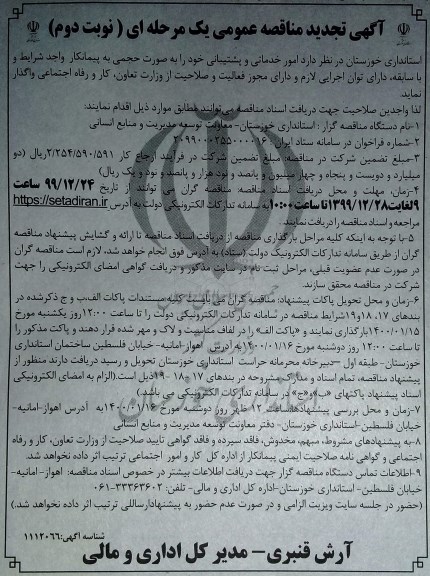 آگهی تجدید مناقصه عمومی یک مرحله ای ( نوبت دوم)
استانداری خوزستان در نظر دارد امور خدماتی و پشتیبانی خود را به صورت حجمی به پیمانکار واجد شرایط و
با سابقه، دارای توان اجرایی لازم و دارای مجوز فعالیت و صلاحیت از وزارت تعاون، کار و رفاه اجتماعی واگذار
نماید.
لذا واجدین صلاحیت جهت دریافت اسناد مناقصه می‌توانند مطابق موارد ذیل اقدام نمایند:
۱-نام دستگاه مناقصه گزار : استانداری خوزستان-معاونت توسعه مدیریت و منابع انسانی
۲-شماره فراخوان در سامانه ستاد ایران: ۲۰۹۹۰۰۰۲۵۵۰۰۰۰۱۶
۳-مبلغ تضمین شرکت در مناقصه: مبلغ تضمین شرکت در فرآیند ارجاع کار ۲/۲۵۴/۵۹۰/۵۹۱ریال (دو
میلیارد و دویست و پنجاه و چهار میلیون و پانصد و نود هزار و پانصد و نود و یک ریال)
۴-زمان، مهلت و محل دریافت اسناد مناقصه: مناقصه گران می توانند از تاریخ ۹۹/۱۲/۲۴ ساعت
۹لغایت۱۳۹۹/۱۲/۲۸تا ساعت۱۰:۰۰به سامانه تدارکات الکترونیکی دولت به آدرس https://setadiran.ir
مراجعه و اسناد مناقصه را دریافت نمایند.
۵-با توجه به اینکه کلیه مراحل بارگذاری مناقصه از دریافت اسناد مناقصه تا ارائه و گشایش پیشنهاد مناقصه
گران از طریق سامانه تدارکات الکترونیک دولت (ستاد) به آدرس فوق انجام خواهد شد، لازم است مناقصه گران
در صورت عدم عضویت قبلی، مراحل ثبت نام در سایت مذکور و دریافت گواهی امضای الکترونیکی را جهت
شرکت در مناقصه محقق سازند.
۶-زمان و محل تحویل پاکات پیشنهاد: مناقصه گران می بایست کلیه مستندات پاکات الف،ب و ج ذکرشده در
بندهای ۱۷، ۱۸و۱۹شرایط مناقصه در سامانه تدارکات الکترونیکی دولت را تا ساعت ۱۲:۰۰روز یکشنبه مورخ
۱۴۰۰/۰۱/۱۵بارگذاری نمایند و «پاکت الف» را در لفاف مناسب و لاک و مهر شده قرار دهند و پاکت مذکور را
تا ساعت ۱۲:۰۰ روز دوشنبه مورخ ۱۴۰۰/۰۱/۱۶ به آدرس اهواز-امانیه- خیابان فلسطین ساختمان استانداری
خوزستان- طبقه اول –دبیرخانه محرمانه حراست استانداری خوزستان تحویل و رسید دریافت دارند منظور از
پیشنهاد مناقصه، تمام اسناد و مدارک مشروحه در بندهای ۱۷-۱۸-۱۹ذیل است.(الزام به امضای الکترونیکی
اسناد پیشنهاد پاکتهای «ب»و«ج» در سامانه تدارکات الکترونیکی می باشد)
۷-زمان و محل بررسی پیشنهادها:ساعت ۱۲ ظهر روز دوشنبه مورخ ۱۴۰۰/۰۱/۱۶به آدرس اهواز-امانیه-
خیابان فلسطین-استانداری خوزستان- دفتر معاونت توسعه مدیریت و منابع انسانی
۸-به پیشنهادهای مشروط، مبهم، مخدوش، فاقد سپرده و فاقد گواهی تایید صلاحیت از وزارت تعاون، کار و رفاه
اجتماعی و گواهی نامه صلاحیت ایمنی پیمانکار از اداره کل کار و امور اجتماعی ترتیب اثر داده نخواهد شد.
۹-اطلاعات تماس دستگاه مناقصه گزار جهت دریافت اطلاعات بیشتر در خصوص اسناد مناقصه: اهواز-امانیه-
خیابان فلسطین- استانداری خوزستان-اداره کل اداری و مالی- تلفن: ۳۳۳۶۳۶۰۲-۰۶۱
(حضور در جلسه سایت ویزیت الزامی و در صورت عدم حضور به پیشنهادارسالی ترتیب اثر داده نخواهد شد.)
شناسه آگهی:۱۱۱۲۰۶۶
آرش قنبری- مدیر کل اداری و مالی